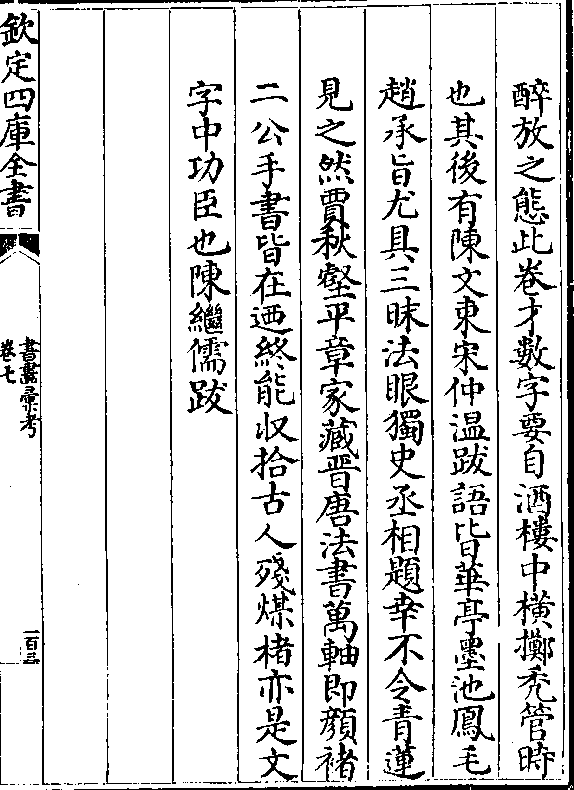 醉放之態此卷才數字要自酒樓中橫擲禿管時
也其後有陳文東宋仲温跋語皆華亭墨池鳳毛
趙承旨尤具三昧法眼獨史丞相題幸不令青蓮
見之然賈秋壑平章家藏晉唐法書萬軸即顔褚
二公手書皆在廼終能収拾古人殘煤楮亦是文
字中功臣也陳繼儒跋
欽定四庫全書
書畫彚考
卷七
一百三